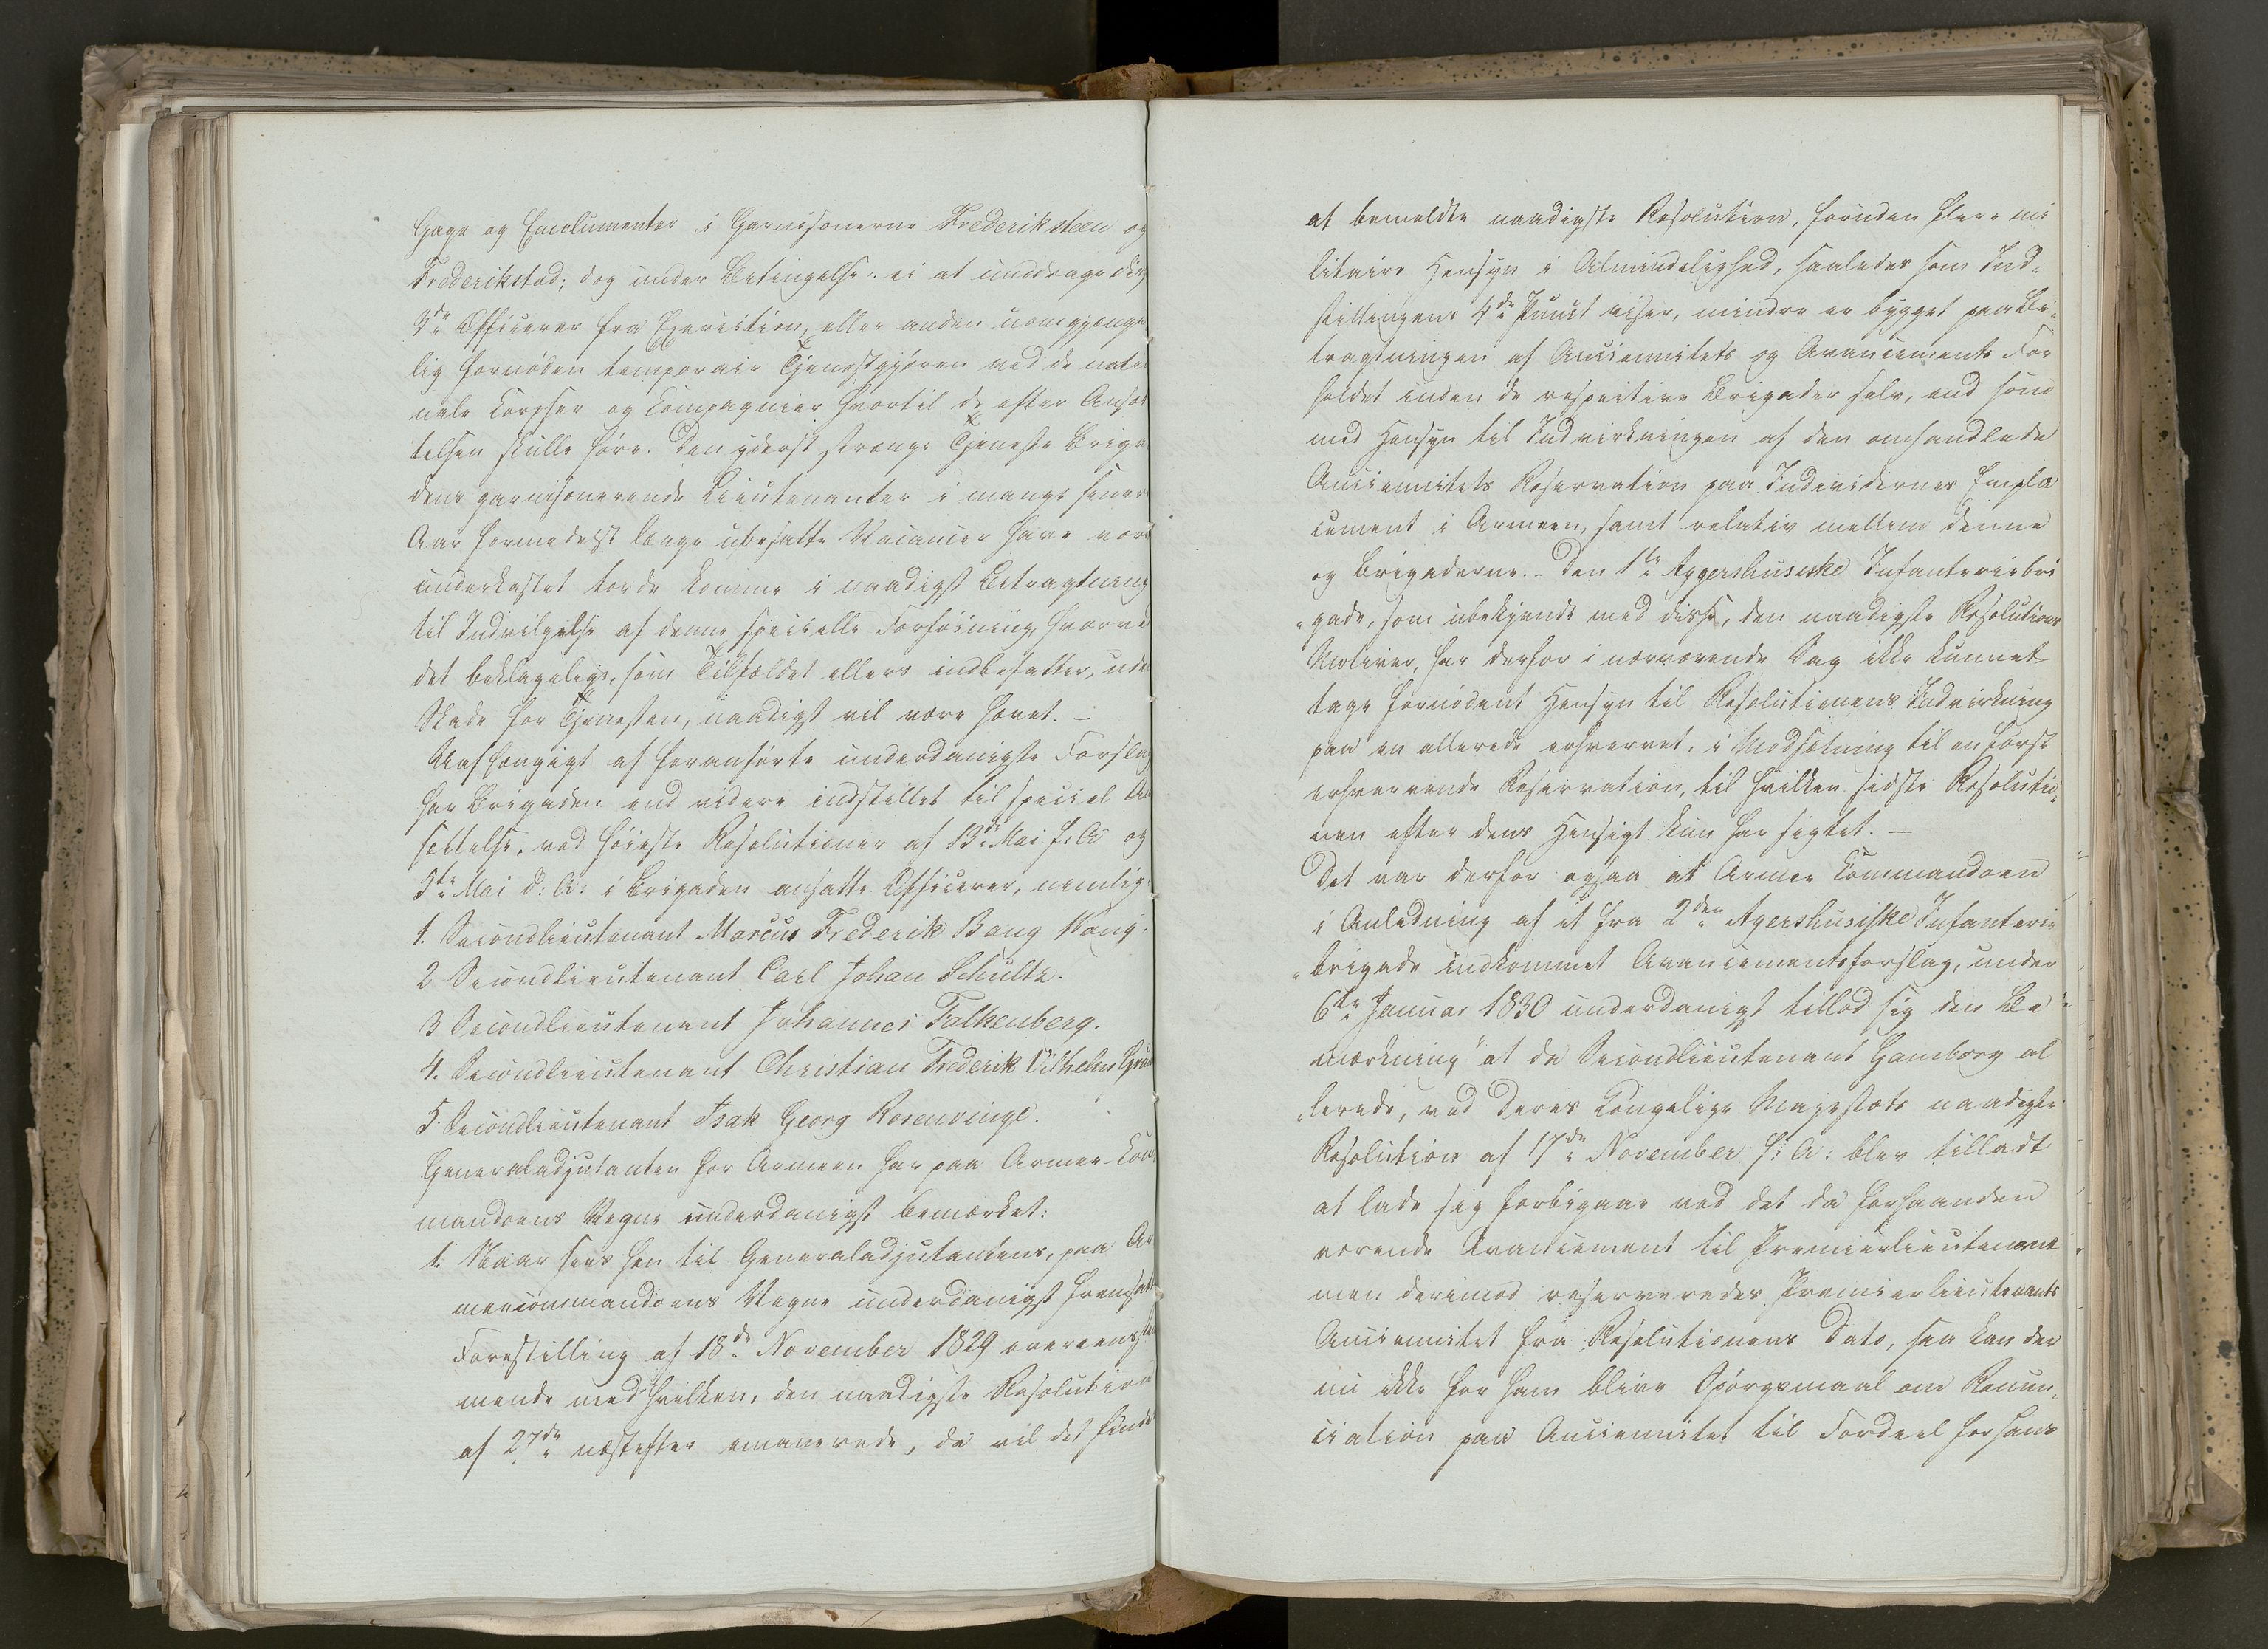 Gage og Emolumenter i Garnisonerne Frederiksteen og
Frederikstad; dog under Betingelse: ei at unddrage dis
3de Officerer fra Exercition, eller anden uomgjænge
lig fornøden temporair Tjenestgjøren ved de natio
nale Corpser og Compagnier hvortil de efter Ansæt
telsen skulle høre. Den yderst strænge Tjeneste Briga
dens garnisonerende Lieutenanter i mange senere
Aar formedelst længe ubesatte Vacancer have være
underkastet torde komme i naadigst Betragtning
til Indvilgelse af denne specielle Forføining, hvorved
det beklagelige, som Tilfældet ellers indbefatter, uden
Skade for Tjenesten, naadigst vil være hævet. –
Uafhængigt af foranførte underdanigste Forslag
har Brigaden end videre indstillet til speciel An
sættelse, ved høieste Resolutioner af 13de Mai f: A og
5te Mai d: A: i Brigaden ansatte Officerer, nemlig:
1. Secondlieutenant Marcus Frederik Bang Wang.
2 Secondlieutenant Carl Johan Schultz.
3 Secondlieutenant Johannes Falkenberg.
4. Secondlieutenant Christian Frederik Vilhelm
5. Secondlieutenant Isak Georg Rosenvinge.
Generaladjutanten for Armeen har paa Armee-Com
mandoens Vegne underdanigst bemærket:
1. Naar sees hen til Generaladjutantens, paa Ar
meecommandoens Vegne underdanigst fremsatte
Forestilling af 18de November 1829 overeensstem
mende med hvilken, den naadigste Resolution
af 27de næstefter emanerede, da vil det finde
at bemeldte naadigste Resolution, foruden flere mi
litaire Hensyn i Almindelighed, saaledes som Ind-
stillingens 4de Punct viser, mindre er bygget paa Be-
tragtningen af Anciennitets og Avancements For
holdet inden de respective Brigader selv, end som
med Hensyn til Indvirkningen af den omhandlede
Anciennitets Reservation paa Individernes Empla
cement i Armeen, samt relativ mellem denne
og Brigaderne. – Den 1te Aggershusiske Infanteriebri
"gade, som ubekjendt med disse, den naadigste Resolutions
Motiver, har derfor i nærværende Sag ikke kunnet
tage fornødent Hensyn til Resolutionens Indvirkning
paa en allerede erhvervet, i Modsætning til en først
erhvervende Reservation, til hvilken sidste Resolutio-
nen efter dens Hensigt kun har sigtet. –
Det var derfor ogsaa at Armee Commandoen
i Anledning af et fra 2den Agershusiske Infanterie
"brigade indkommet Avancementsforslag, under
6te Januar 1830 underdanigst tillod sig den Be
mærkning "at da Secondlieutenant Hamborg al
"lerede, ved Deres Kongelige Majestæts naadigste
Resolution af 17de November f: A: blev tilladt
at lade sig forbigaae ved det da forhaanden
værende Avancement til Premierlieutenant
men derimod reserveredes Premierlieutenants
Anciennitet fra Resolutionens Dato, saa kan der
nu ikke for ham blive Spørgsmaal om Renun-
ciation paa Anciennitet til Fordeel for hans